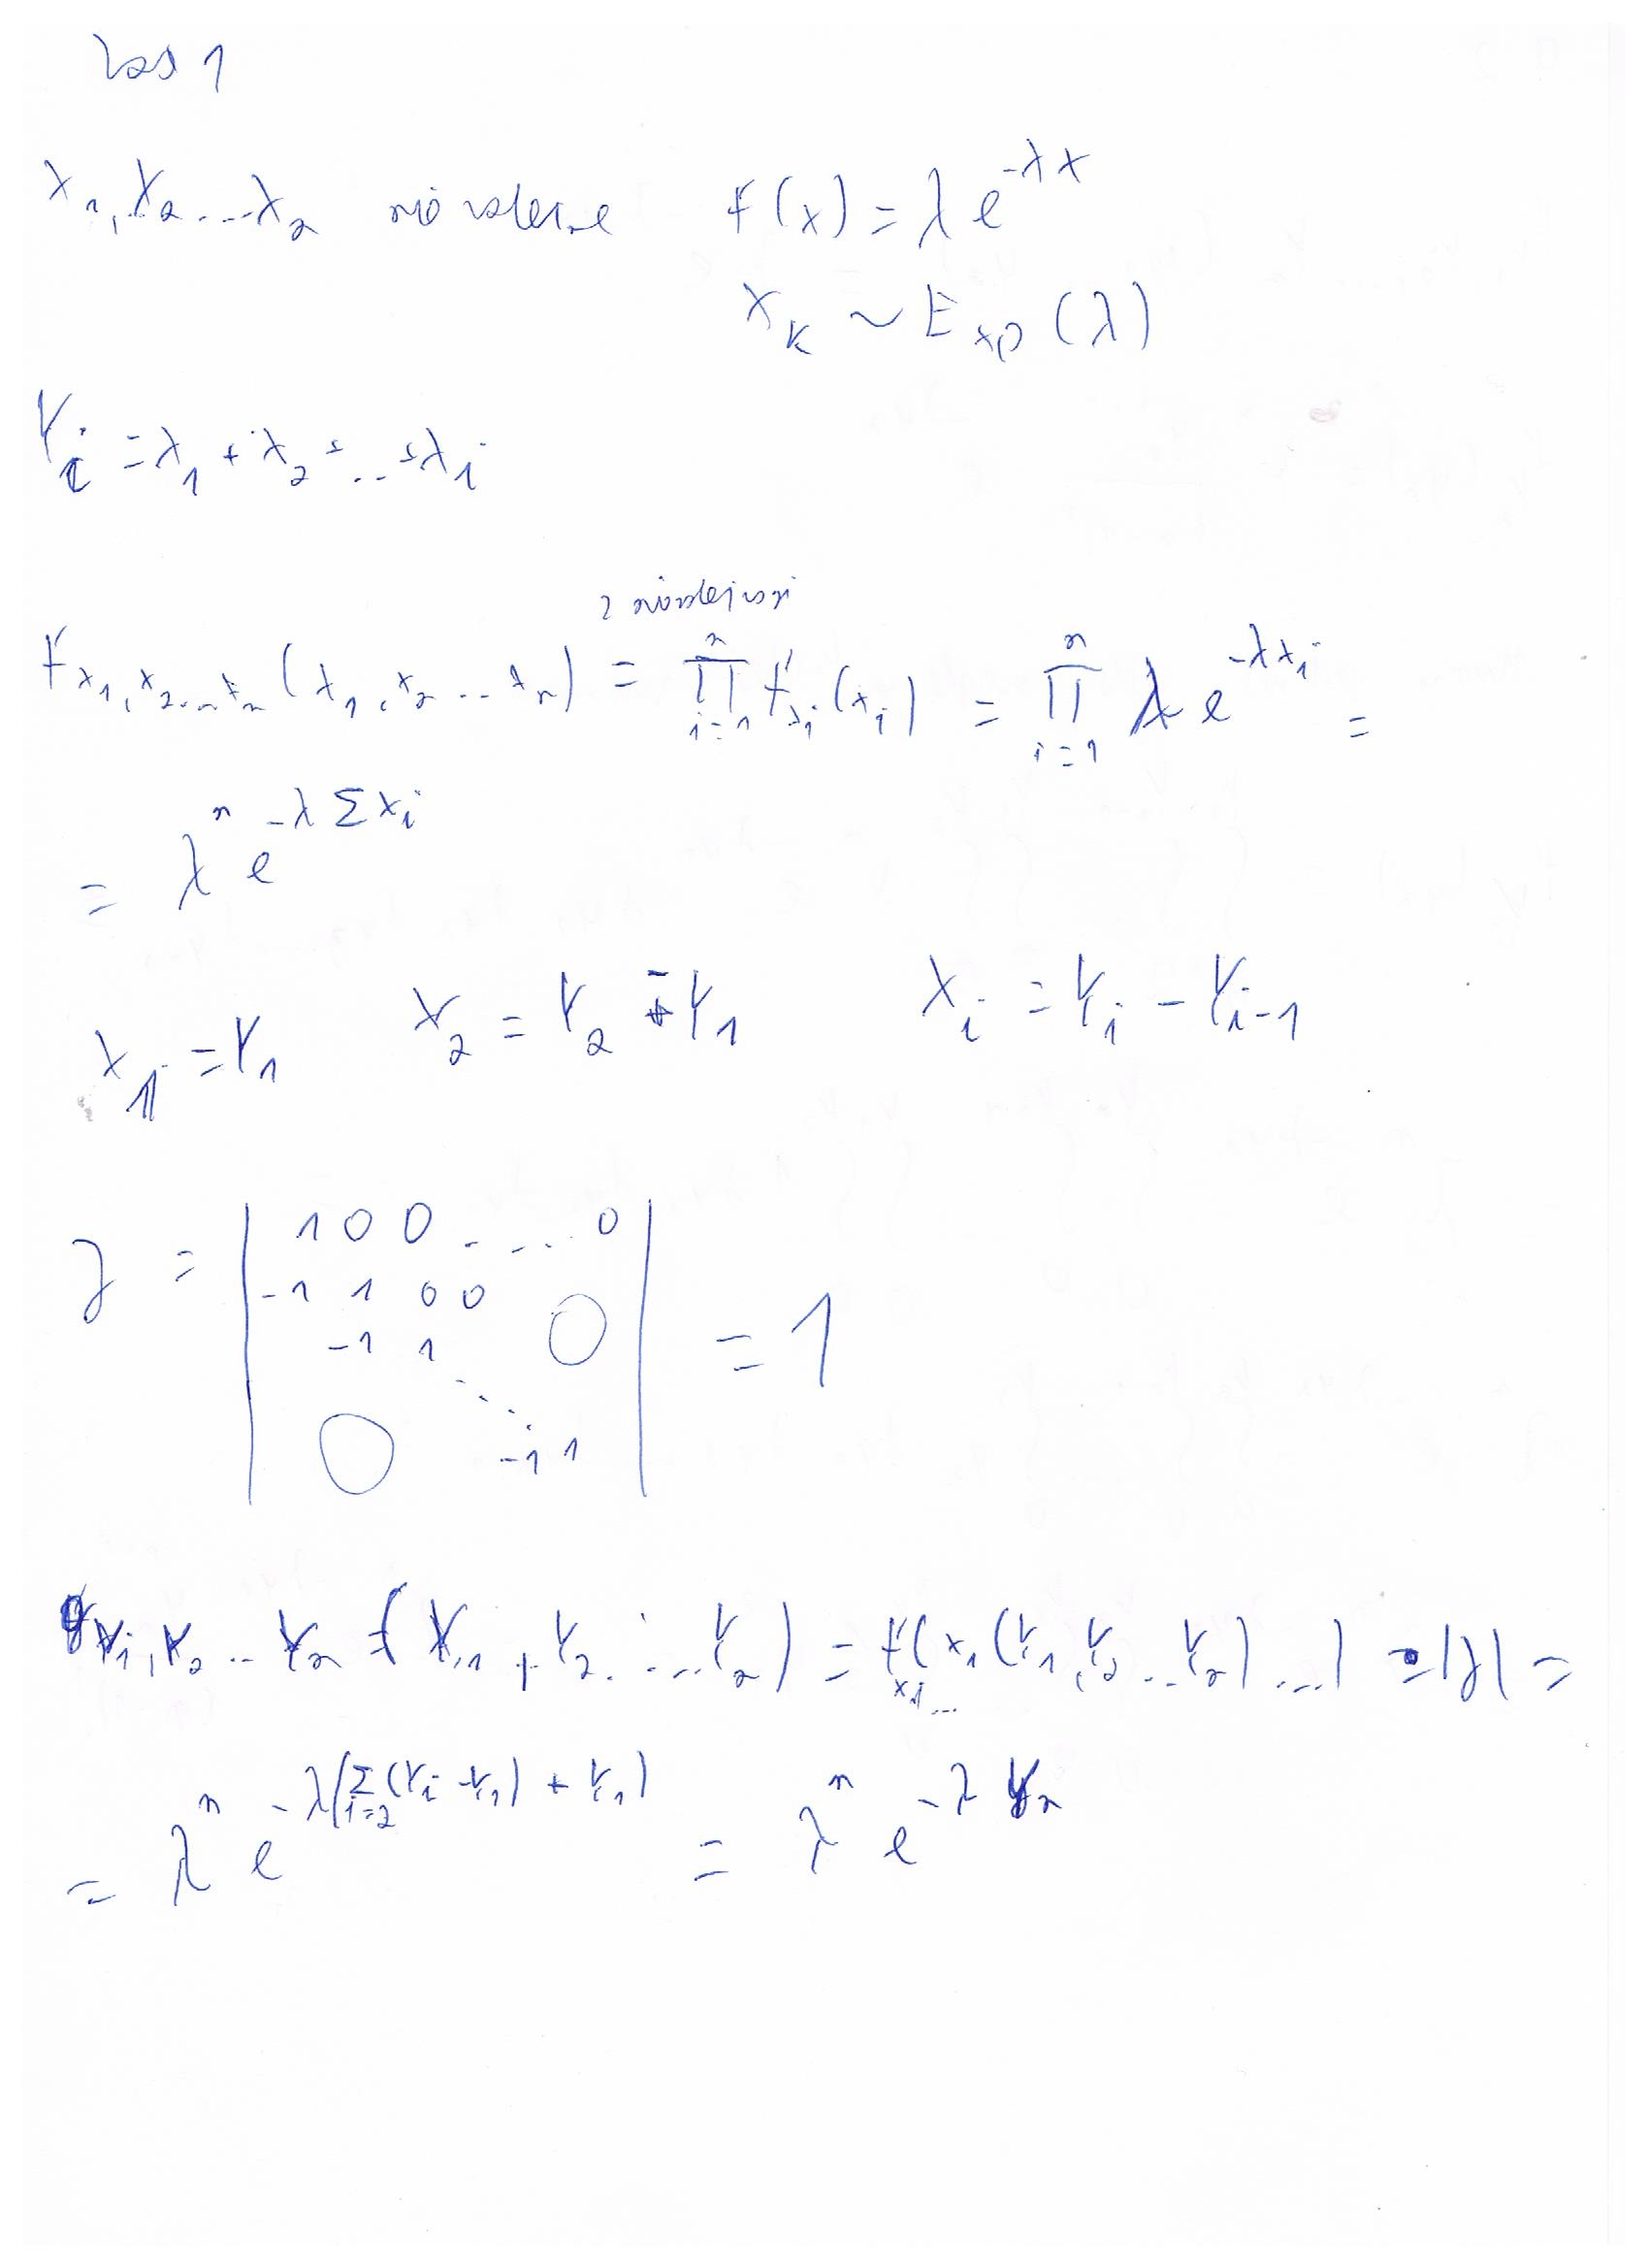 Zad 1
X₁, X₂ ... Xₙ niezależne f(x) = λ e^{-λx}
X_K ~ Exp(λ)
Y_i = X₁ + X₂ + ... + X_i
z niezależności
f_{X₁,X₂...Xₙ}(x₁, x₂ ... xₙ) = ∏_{i=1}^{n} f_{X_i}(x_i) = ∏_{i=1}^{n} λ e^{-λx_i} =
= λⁿ e^{-λ Σ x_i}
X₁ = Y₁ X₂ = Y₂ - Y₁ X_i = Y_i - Y_{i-1}
J = | 1 0 0 ... 0
-1 1 0 0 0
-1 1 = 1
0 ... -1 1 |
g_{Y₁,Y₂...Yₙ}(Y₁, Y₂, ... Yₙ) = f_{X₁...}(x₁(Y₁, Y₂ ... Yₙ) ...) · |J| =
= λⁿ e^{-λ(Σ_{i=2}(Y_i - Y_1) + Y₁)} = λⁿ e^{-λ Yₙ}